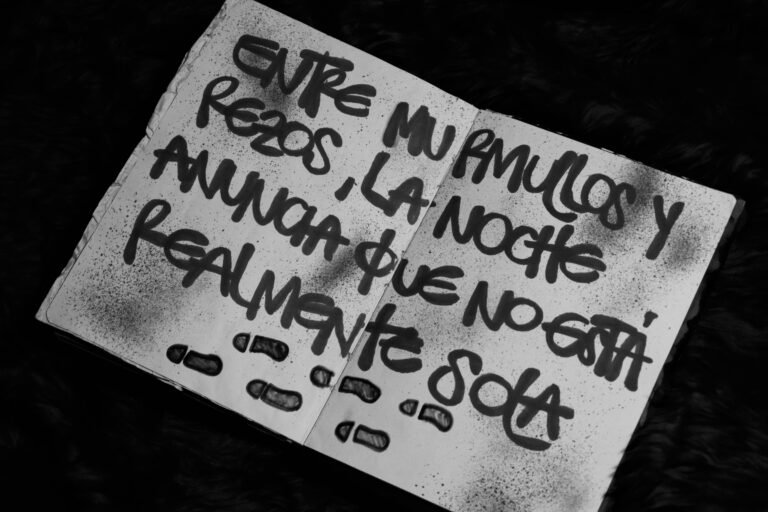 ENTRE MURMULLOS Y
REZOS, LA NOCHE
ANUNCIA QUE NO ESTÁ
REALMENTE SOLA